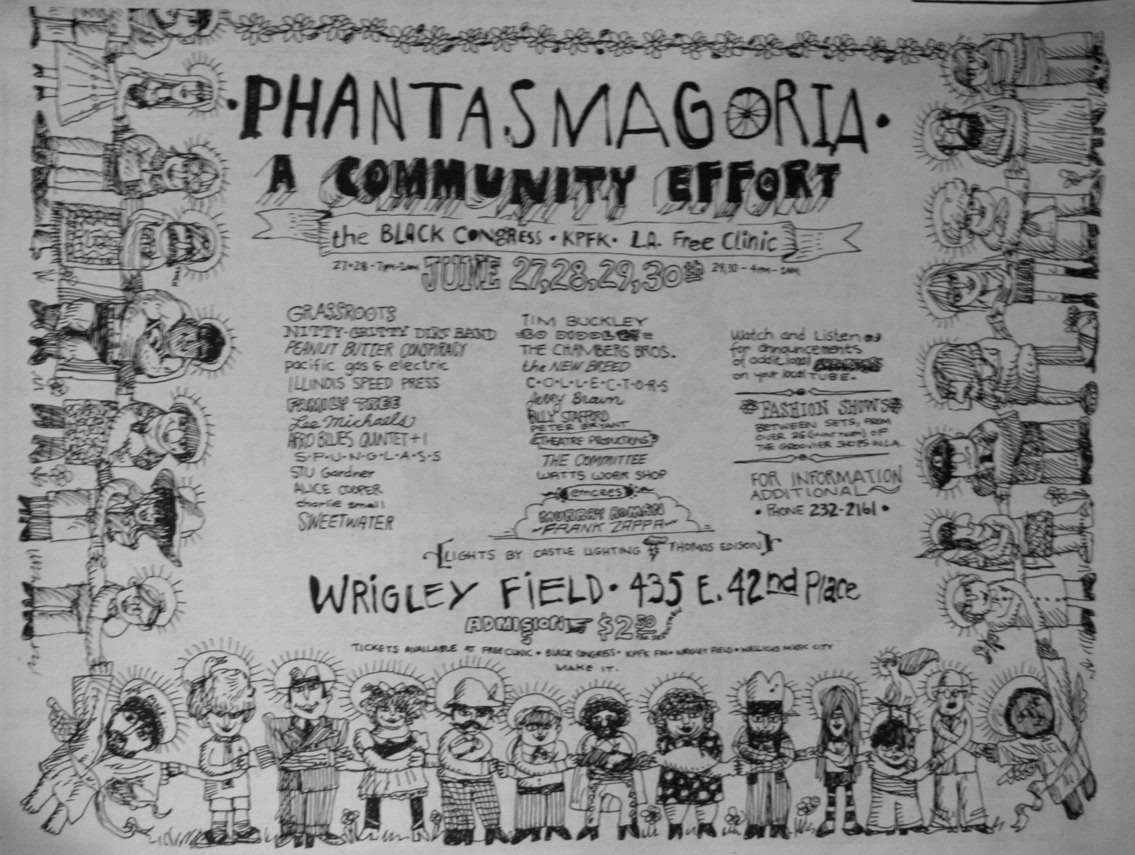 • PHANTASMAGORIA •
A COMMUNITY EFFORT
the BLACK CONGRESS • KPFK • L.A. Free Clinic
27-28 - 7pm-2am JUNE 27,28,29,30th 29,30 - 4pm - 2AM
GRASSROOTS
NITTY-GRITTY DIRT BAND
PEANUT BUTTER CONSPIRACY
pacific gas & electric
ILLINOIS SPEED PRESS
FAMILY TREE
Lee Michaels
AFRO BLUES QUINTET + 1
S•P•U•N•G•L•A•S•S
STU Gardner
ALICE COOPER
charlie small
SWEETWATER
TIM BUCKLEY
BO DIDDLEY
THE CHAMBERS BROS.
the NEW BREED
C•O•L•L•E•C•T•O•R•S
Jerry Braun
BILLY STAFFORD
PETER BRYANT
THEATRE PRODUCTIONS
THE COMMITTEE
WATTS WORK SHOP
emcees
MURRAY ROMAN
FRANK ZAPPA
Watch and Listen
for announcements
of additional
on your local TUBE.
FASHION SHOWS
BETWEEN SETS, FROM
OVER 25 OF
THE GROOVIER SHOPS IN L.A.
FOR INFORMATION
ADDITIONAL
• PHONE 232-2161 •
LIGHTS BY CASTLE LIGHTING THOMAS EDISON
WRIGLEY FIELD • 435 E. 42nd Place
ADMISION $2.50
TICKETS AVAILABLE AT FREE CLINIC • BLACK CONGRESS • KPFK FM • WRIGLEY FIELD • WALLICHS MUSIC CITY
MAKE IT.